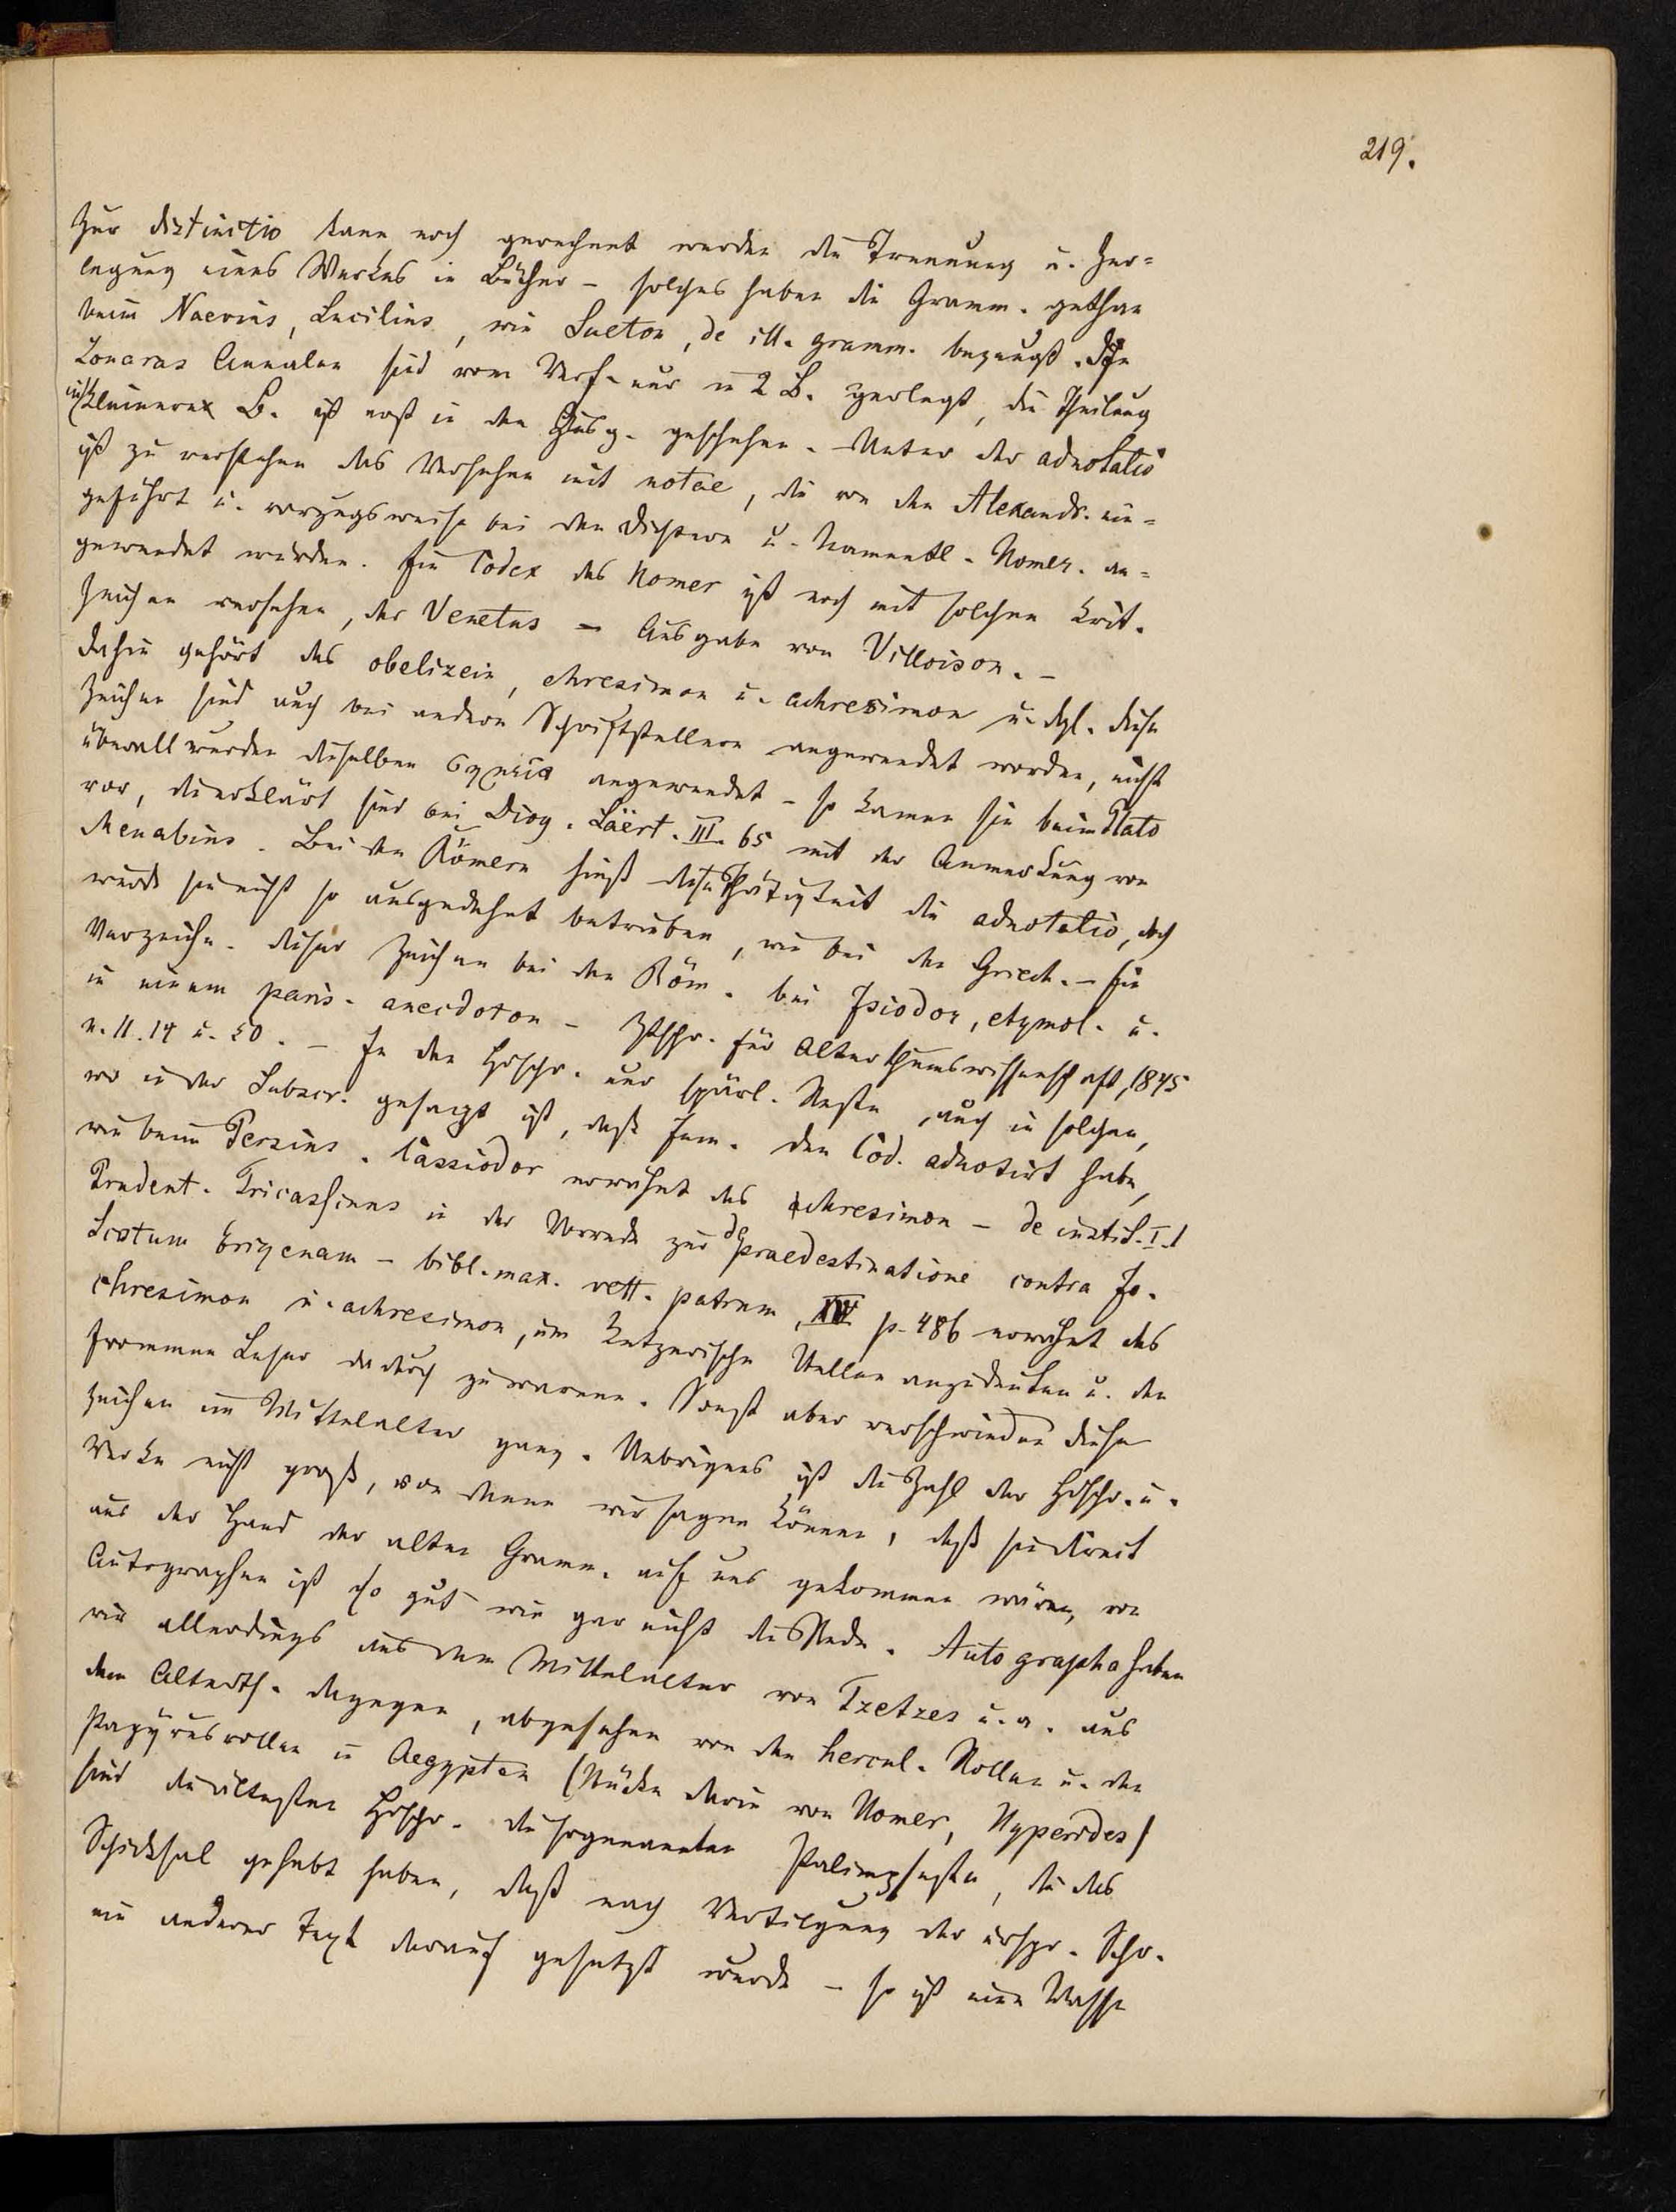 219.
Zur distinctio kann noch gerechnet werden die Trennung u. Zer-
legung eines Werkes in Bücher – solches haben die Gramm. gethan
beim Naevius, Lucilius, wie Sueton, de ill. gramm. bezeugt. Des
Zonaras Annalen sind vom Verf. nur in 2 B. zerlegt, die Theilung
in kleinere B. ist erst in den Ausg. geschehen. – Unter der adnotatio
ist zu verstehen das Versehen mit notae, die von den Alexandr. ein-
geführt u. vorzugsweise bei den Dichtern u. namentl. Homer. an-
gewendet wurden. Ein Codex des Homer ist noch mit solchen krit.
Zeichen versehen, der Venetus – Ausgabe von Villoison. –
Dahin gehört das obelizein, chresimon u. achresimon u. dgl. Diese
Zeichen sind auch bei andern Schriftstellern angewendet worden, nicht
überall wurden dieselben σημεῖα angewendet – so kamen sie beim Plato
vor, die erklärt sind bei Diog. Läert. III. 65 mit der Anmerkung von
Menabius. Bei den Römern hieß diese Thätigkeit die adnotatio, doch
wurde sie nicht so ausgedehnt betrieben, wie bei den Griech. – Ein
Verzeichn. dieser Zeichen bei den Röm. bei Isiodor, etymol. u.
in einem paris. anecdoton – Ztschr. für Alterthumswissenschaft, 1845
n. 11. 14 u. 50. – In den Hdschr. nur spärl. Reste, auch in solchen,
wo in der Subscr. gesagt ist, daß Jem. den Cod. adnotirt habe,
wie beim Persius. Cassiodor erwähnt das chresimon – de instit. I. 1
Prudent. Tricassinus in der Vorrede zur de praedestinatione contra Jo.
Scotum Erigenam – bibl. max. vett. patrum, XV p. 486 erwähnt das
chresimon u. achresimon, um ketzerische Stellen anzudeuten u. den
frommen Leser dadurch zu warnen. Sonst aber verschwinden diese
Zeichen im Mittelalter ganz. Uebrigens ist die Zahl der Hdschr. u.
Werke nicht groß, von denen wir sagen können, daß sie direct
aus der Hand der alten Gramm. auf uns gekommen wären, von
Autographen ist so gut wie gar nicht die Rede. Autographa haben
wir allerdings aus dem Mittelalter von Tzetzes u. a. aus
dem Alterth. dagegen, abgesehen von den hercul. Rollen u. den
Papyrusrollen in Aegypten (Stücke darin von Homer, Hyperides)
sind die ältesten Hdschr. die sogenannten Palimpseste, die das
Schicksal gehabt haben, daß nach Vertilgung der urspr. Schr.
ein anderer Text darauf gesetzt wurde – so ist eine Masse